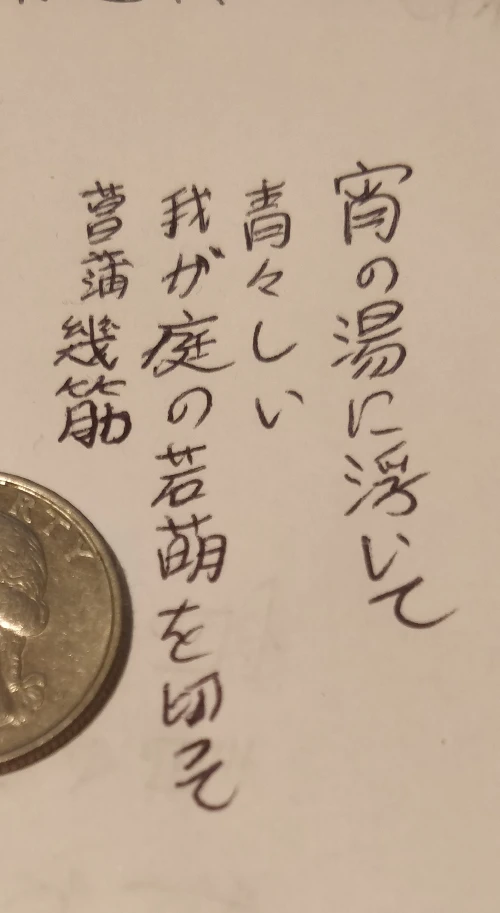 宵の湯に浮いて
青々しい
我が庭の若萌を切って
菖蒲幾筋
ERTY